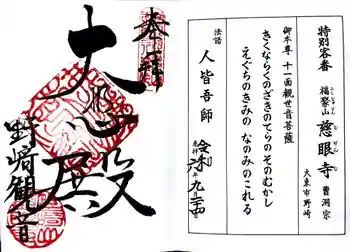 特別客番
福聚山 慈眼寺 曹洞宗
ふくじゅさん じげんじ
大東市野崎
御本尊 十一面観世音菩薩
きくならくのざきのてらのそのむかし
えぐちのきみの なのみのこれる
法話
人皆吾師
令和
奉拝
大悲殿
野崎観音